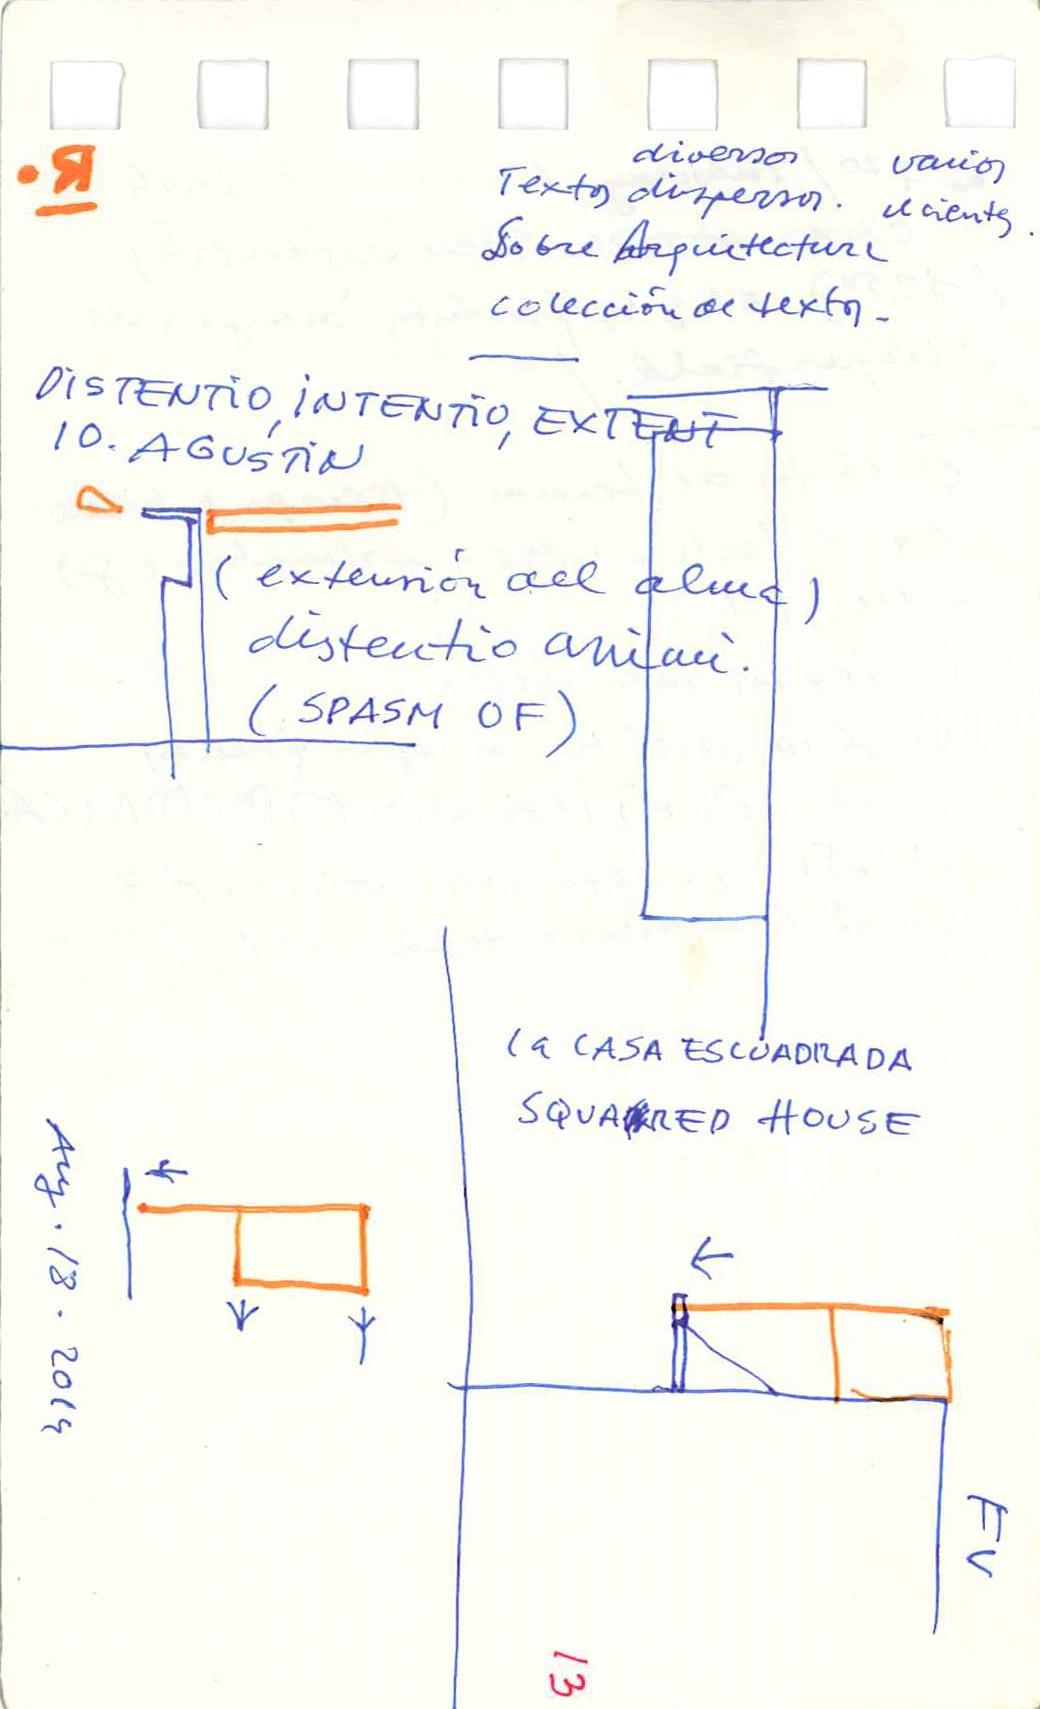 R.
diversos varios
Textos dispersos. recientes.
Sobre Arquitectura
colección de textos-
DISTENTIO, INTENTIO, EXTENT
10. AGUSTIN
(extensión del alma)
distentio animi.
(SPASM OF)
la CASA ESCUADRADA
SQUARED HOUSE
Aug. 18. 2014
FV
13